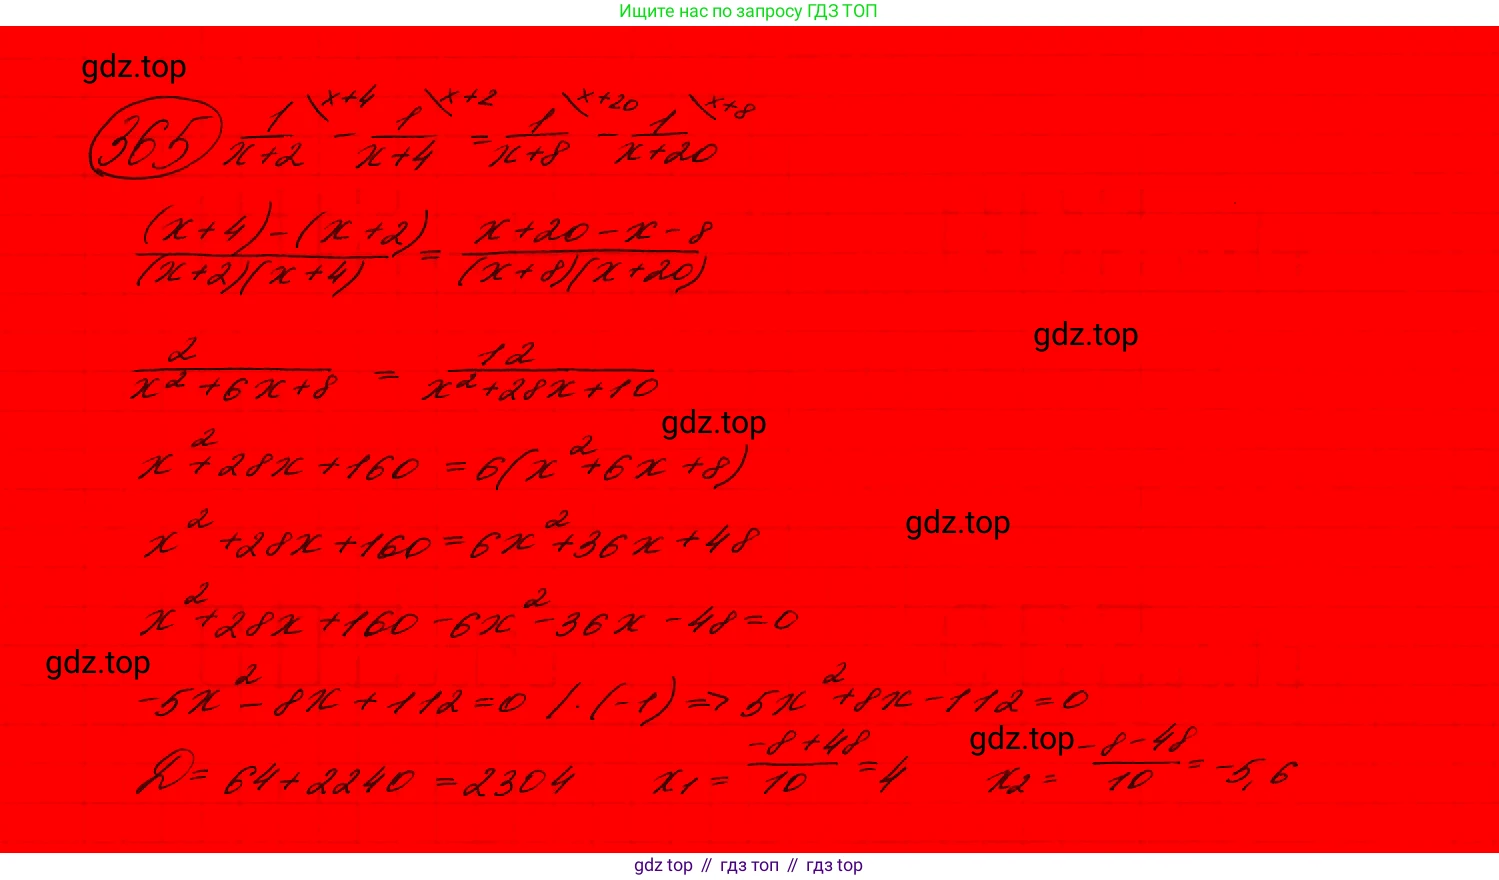 Ищите нас по запросу ГДЗ ТОП
gdz.top
365 1/(x+2) \x+4 - 1/(x+4) \x+2 = 1/(x+8) \x+20 - 1/(x+20) \x+8
((x+4)-(x+2))/((x+2)(x+4)) = (x+20-x-8)/((x+8)(x+20))
gdz.top
2/(x²+6x+8) = 12/(x²+28x+10)
gdz.top
x²+28x+160 = 6(x²+6x+8)
gdz.top
x²+28x+160 = 6x²+36x+48
x²+28x+160-6x²-36x-48=0
gdz.top
-5x²-8x+112=0 /·(-1) => 5x²+8x-112=0
gdz.top
Д= 64+2240 = 2304 x₁ = (-8+48)/10 = 4 x₂ = (-8-48)/10 = -5,6
gdz top // гдз топ // гдз top